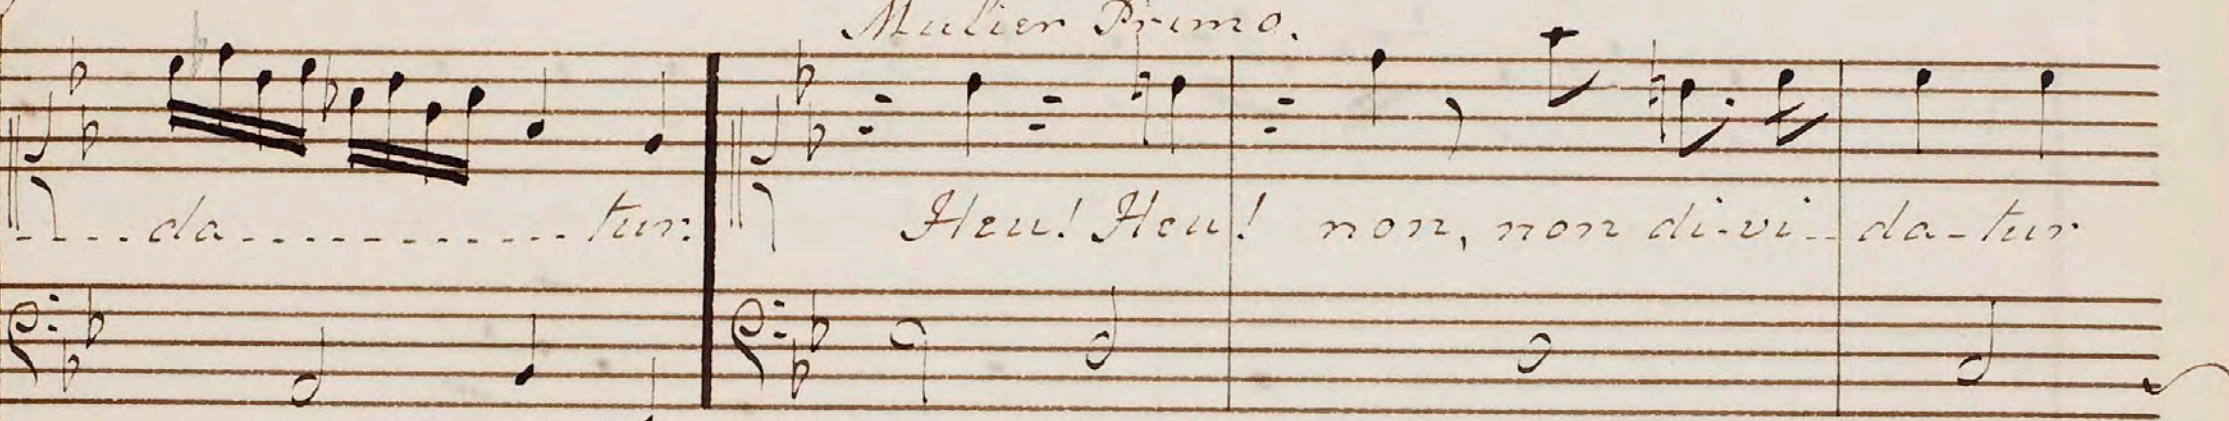 Mulier Primo.
....da............tur. Heu! Heu! non, non di-vi-- da-tur